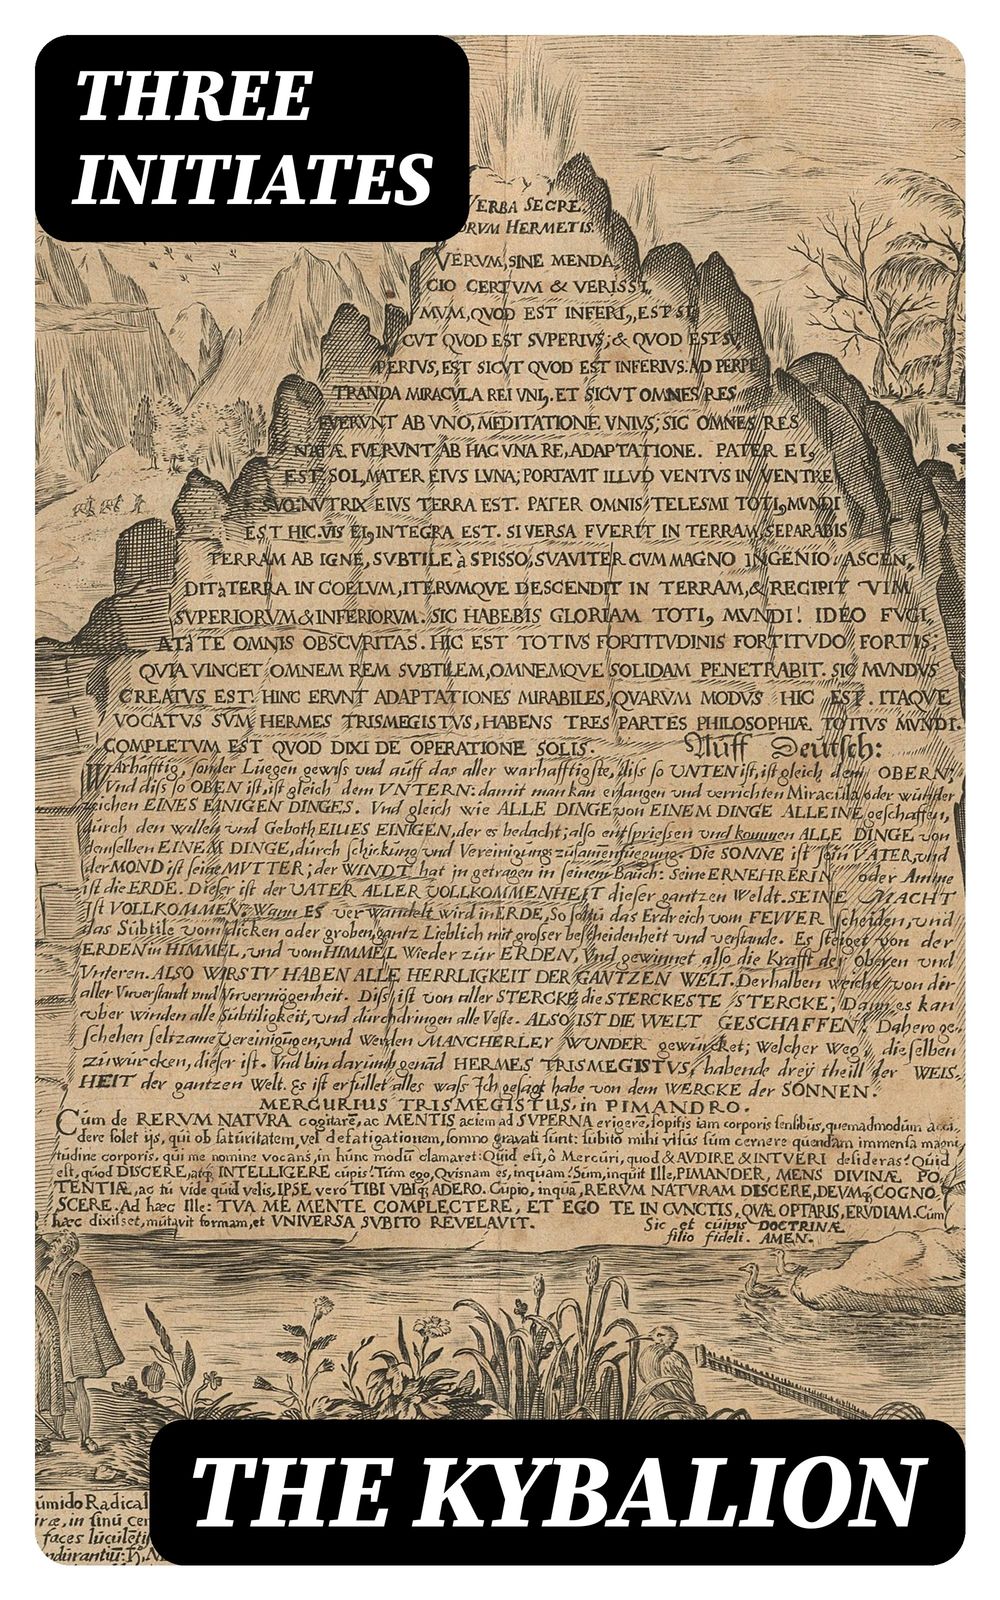 THREE
INITIATES
VERBA SECRE
ORVM HERMETIS.
VERVM, SINE MENDA,
CIO CERTVM & VERISSI,
MVM, QVOD EST INFERI,, EST SI
CVT QVOD EST SVPERIVS; & QVOD EST SV
PERIVS, EST SICVT QVOD EST INFERIVS. AD PERPE
TRANDA MIRACVLA REI VNI,. ET SICVT OMNES RES
FVERVNT AB VNO, MEDITATIONE VNIVS; SIC OMNES RES
NATÆ FVERVNT AB HAC VNA RE, ADAPTATIONE. PATER EI,
EST SOL, MATER EIVS LVNA; PORTAVIT ILLVD VENTVS IN VENTRE
SVO: NVTRIX EIVS TERRA EST. PATER OMNIS TELESMI TOTI, MVNDI
EST HIC. VIS EI, INTEGRA EST. SI VERSA FVERIT IN TERRAM, SEPARABIS
TERRAM AB IGNE, SVBTILE à SPISSO, SVAVITER CVM MAGNO INGENIO: ASCEN,
DIT à TERRA IN COELVM, ITERVMQVE DESCENDIT IN TERRAM, & RECIPIT VIM
SVPERIORVM & INFERIORVM. SIC HABEBIS GLORIAM TOTI, MVNDI! IDEO FVGI,
AT à TE OMNIS OBSCVRITAS. HIC EST TOTIVS FORTITVDINIS FORTITVDO FORTIS;
QVIA VINCET OMNEM REM SVBTILEM, OMNEMQVE SOLIDAM PENETRABIT. SIC MVNDVS
CREATVS EST. HINC ERVNT ADAPTATIONES MIRABILES, QVARVM MODVS HIC EST. ITAQVE
VOCATVS SVM HERMES TRISMEGISTVS, HABENS TRES PARTES PHILOSOPHIÆ TOTIVS MVNDI.
COMPLETVM EST QVOD DIXI DE OPERATIONE SOLIS. Auff Deutsch:
WArhafftig, sonder Luegen gewiss vnd auff das aller warhafftigste, diss so VNTEN ist, ist gleich dem OBERN;
Vnd diss so OBEN ist, ist gleich dem VNTERN: damit man kan erlangen vnd verrichten Miracula oder wunder
zeichen EINES EINIGEN DINGES. Vnd gleich wie ALLE DINGE von EINEM DINGE ALLEINE geschaffen,
durch den willen vnd Geboth EINES EINIGEN, der es bedacht; also entspriessen vnd kommen ALLE DINGE von
demselben EINEM DINGE, durch schickung vnd Vereinigung zusamenfuegung. Die SONNE ist sein VATER, vnd
der MOND ist seine MVTTER; der WINDT hat in getragen in seinem Bauch: Seine ERNEHRERIN oder Amme
ist die ERDE. Dieser ist der VATER ALLER VOLLKOMMENHEIT dieser gantzen Weldt. SEINE MACHT
Ist VOLLKOMMEN: Wann ES verwandelt wird in ERDE, So soltu das Erdreich vom FEWER scheiden, vnd
das Subtile vom dicken oder groben, gantz Lieblich mit grosser bescheidenheit vnd verstande. Es steiget von der
ERDEN in HIMMEL, vnd vom HIMMEL Wieder zur ERDEN, Vnd gewinnet also die Krafft der oberen vnd
Vnteren. ALSO WIRSTV HABEN ALLE HERRLIGKEIT DER GANTZEN WELT. Derhalben weiche von dir
aller Vnverstandt vnd Vnvermögenheit. Diss ist von aller STERCKE die STERCKESTE STERCKE; Dann es kan
vber winden alle Subtiligkeit, vnd durchdringen alle Veste. ALSO IST DIE WELT GESCHAFFEN. Dahero ge,
schehen seltzame Vereinigungen, vnd Werden MANCHERLEY WUNDER gewürcket; Welcher Weg, dieselben
zuwürcken, dieser ist. Vnd bin darumb genād HERMES TRISMEGISTVS, habende drey theill der WEIS,
HEIT der gantzen Welt. Es ist erfüllet alles wass Ich gesagt habe von dem WERCKE der SONNEN.
MERCURIUS TRISMEGISTUS, in PIMANDRO.
Cum de RERVM NATVRA cogitarē, ac MENTIS aciem ad SVPERNA erigere, sopitis iam corporis sensibus, quemadmodum acci,
dere solet ijs, qui ob saturitatem, vel defatigationem, somno gravati sunt: subito mihi visus sum cernere quendam immensa magni
tudine corporis, qui me nomine vocans, in hunc modū clamaret: Quid est, ô Mercuri, quod & AVDIRE & INTVERI desideras? Quid
est, quod DISCERE, atq; INTELLIGERE cupis? Tum ego, Quisnam es, inquam? Sum, inquit Ille, PIMANDER, MENS DIVINÆ PO,
TENTIÆ, ac tu vide quid velis, IPSE verò TIBI VBIQ; ADERO. Cupio, inquā, RERVM NATVRAM DISCERE, DEVMQ; COGNO,
SCERE. Ad hæc Ille: TVA ME MENTE COMPLECTERE, ET EGO TE IN CVNCTIS, QVÆ OPTARIS, ERVDIAM. Cum
hæc dixisset, mutavit formam, et VNIVERSA SVBITO REVELAVIT.
Sic et cuipis DOCTRINÆ
filio fideli. AMEN.
THE KYBALION
umido Radical
iræ, in sinu cer
faces luculet
ndurantiu